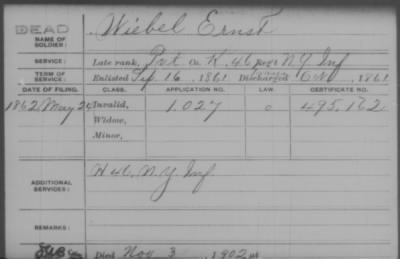 DEAD
NAME OF SOLDIER: Wiebel Ernst
SERVICE: Late rank, Pvt Co. K, 46 Reg't N.Y. Inf
TERM OF SERVICE: Enlisted Sep. 16, 1861 Discharged Oct 1861
DATE OF FILING. CLASS. APPLICATION NO. LAW. CERTIFICATE NO.
1862 May 26 Invalid, 1.027 495.162
Widow,
Minor,
ADDITIONAL SERVICES: H 46, N.Y. Inf
REMARKS:
Died Nov 3, 1902 at